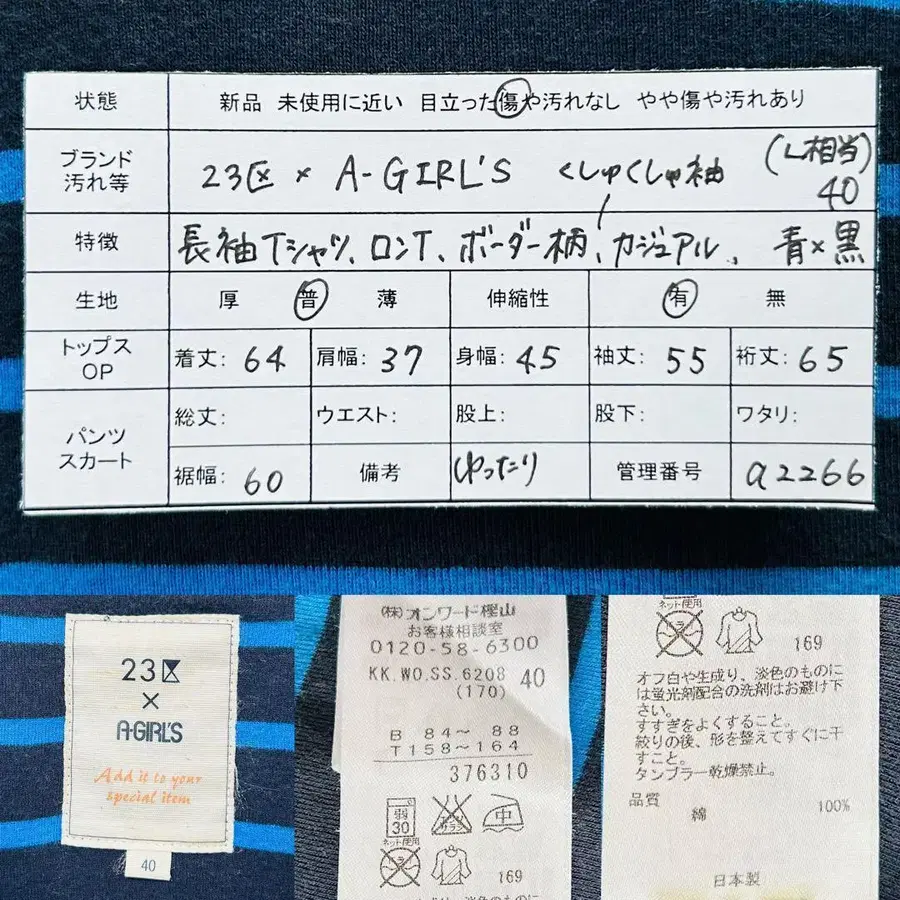 状態 新品 未使用に近い 目立った傷や汚れなし やや傷や汚れあり
ブランド 汚れ等 23区 × A-GIRL'S くしゅくしゅ袖 (L相当) 40
特徴 長袖Tシャツ、ロンT、ボーダー柄、カジュアル、青×黒
生地 厚 普 薄 伸縮性 有 無
トップス OP 着丈: 64 肩幅: 37 身幅: 45 袖丈: 55 裄丈: 65
パンツ スカート 総丈: ウエスト: 股上: 股下: ワタリ:
裾幅: 60 備考 ゆったり 管理番号 a2266
23区
×
A-GIRL'S
Add it to your
special item
40
(株)オンワード樫山
お客様相談室
0120-58-6300
KK.WO.SS.6208 40
(170)
B 84～ 88
T158～164
376310
弱
30
エンソ
サラシ
中
ネット使用
169
ネット使用
169
オフ白や生成り、淡色のものに
は蛍光剤配合の洗剤はお避け下
さい。
すすぎをよくすること。
絞りの後、形を整えてすぐに干
すこと。
タンブラー乾燥禁止。
品質
綿 100%
日本製